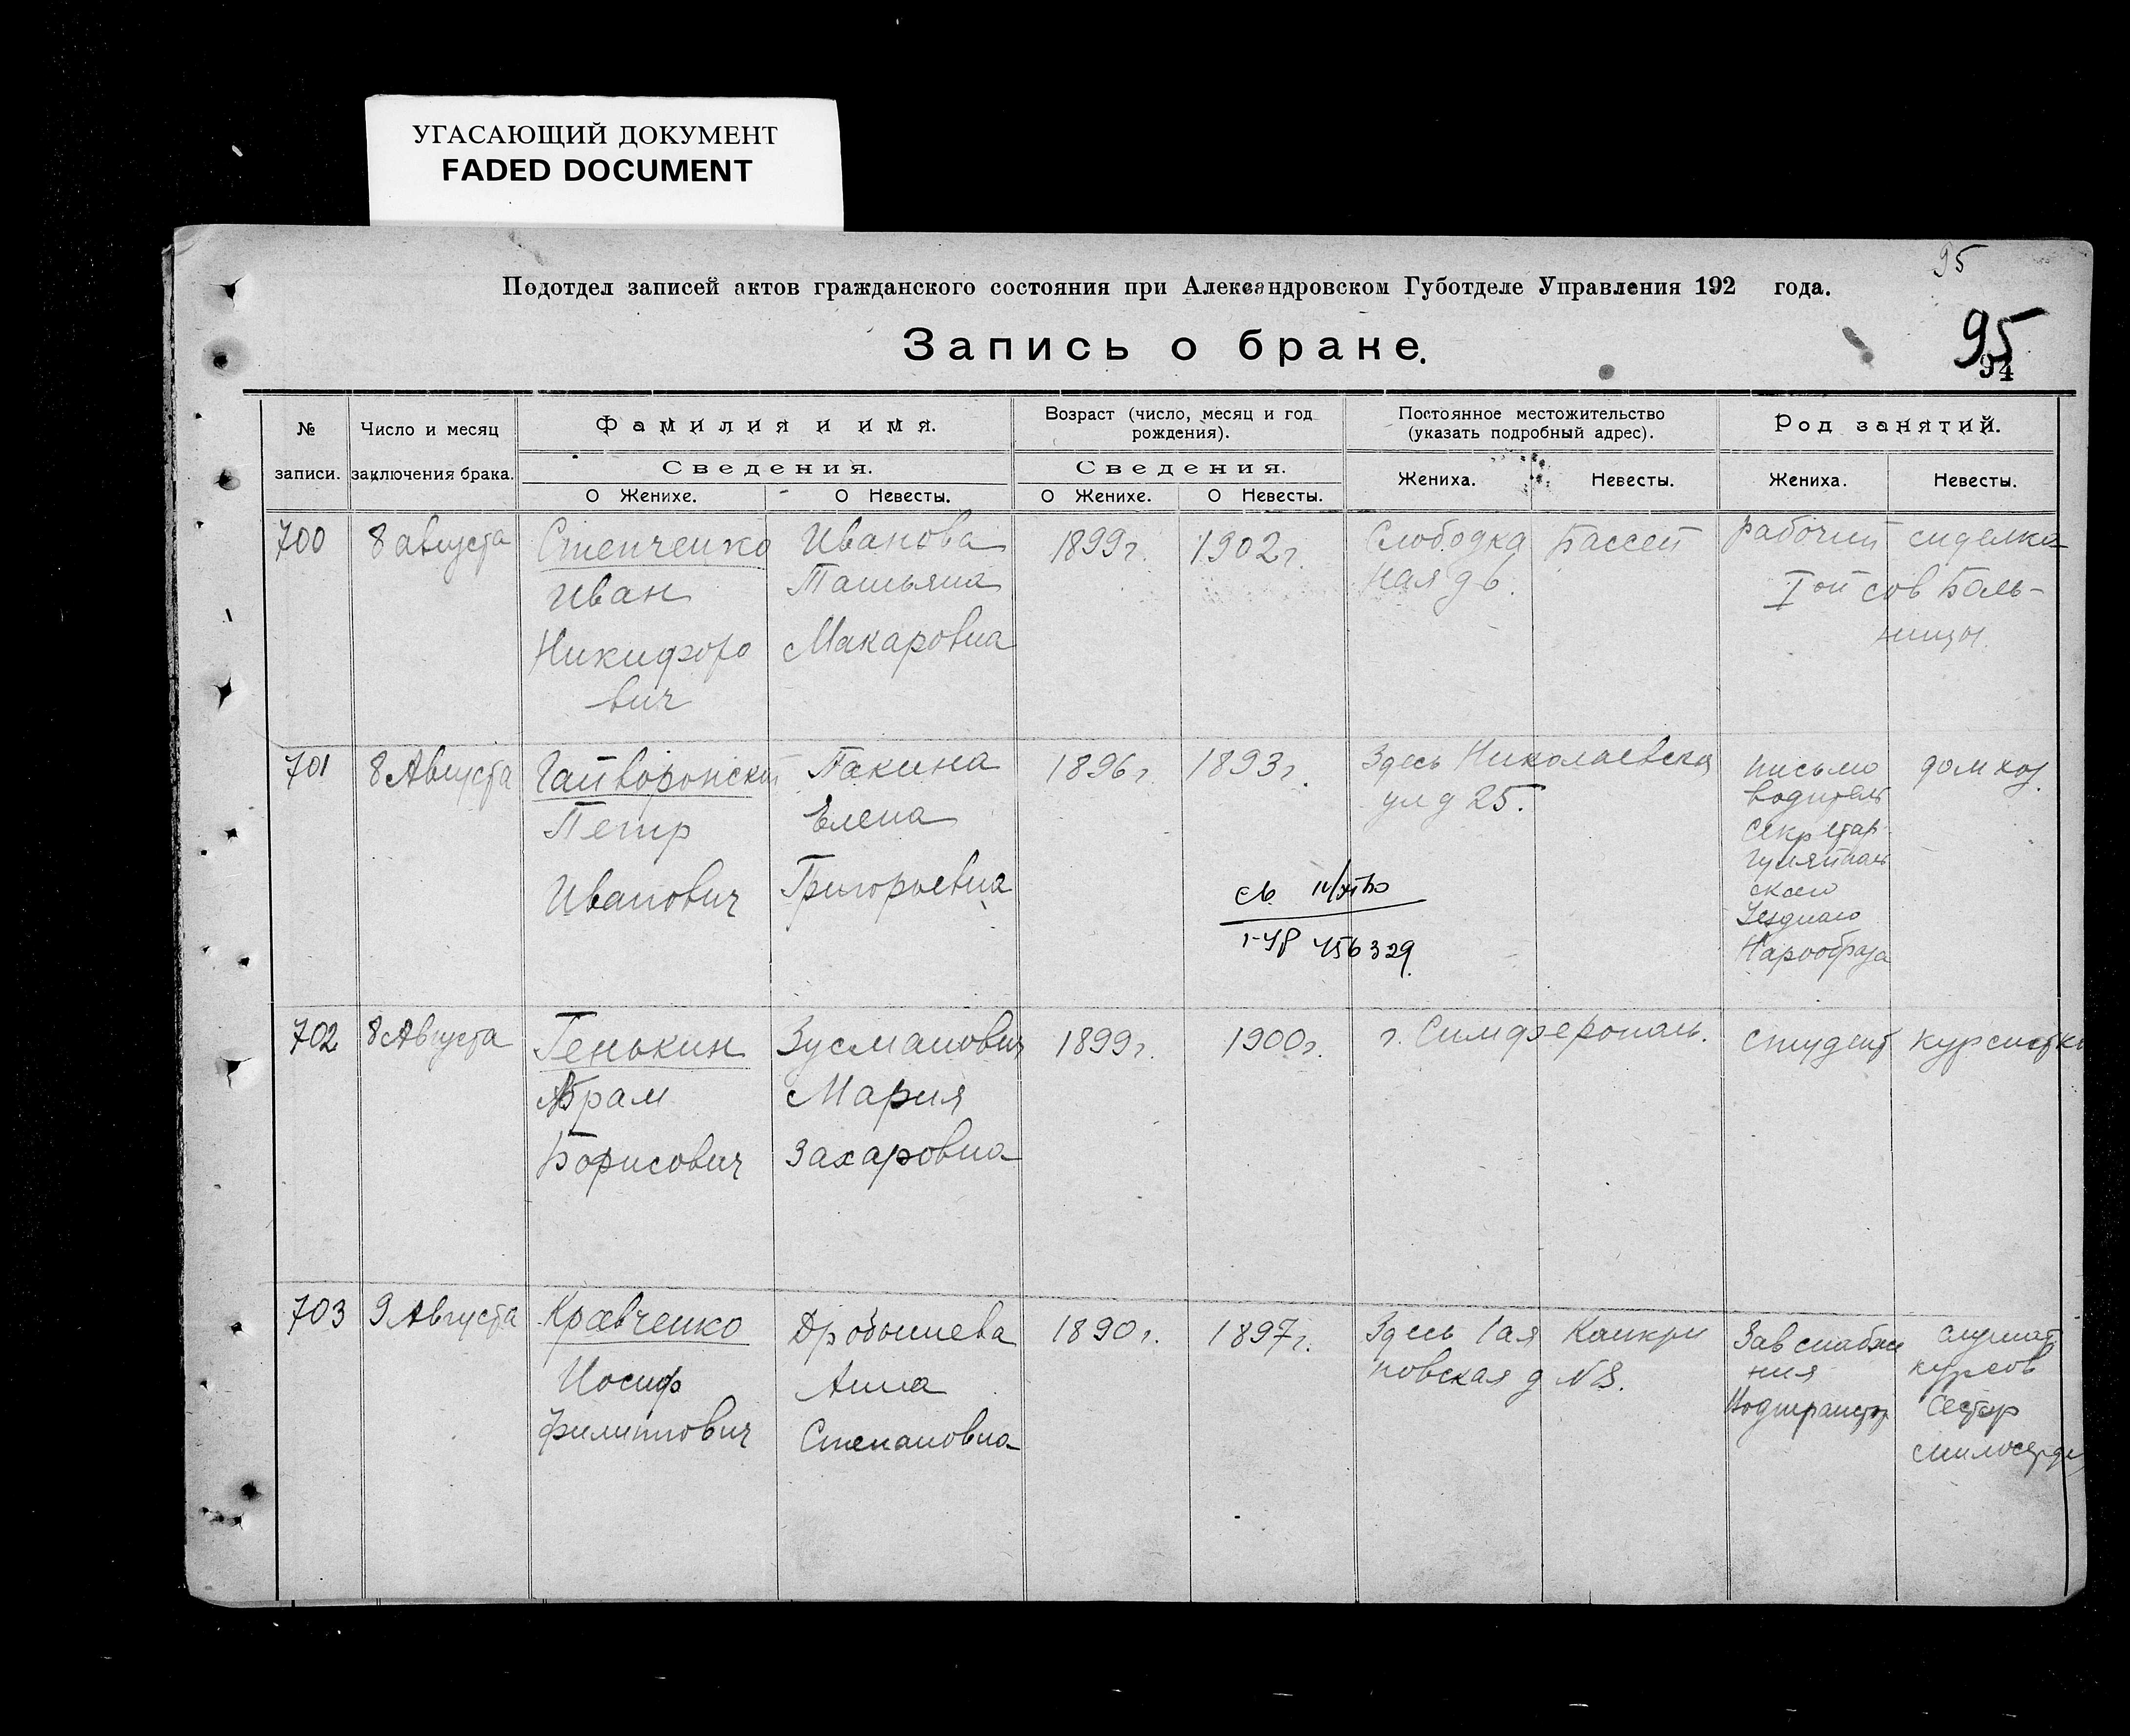 УГАСАЮЩИЙ ДОКУМЕНТ
FADED DOCUMENT
95
Подотдел записей актов гражданского состояния при Александровском Губотделе Управления 192 года.
95
94
Запись о браке.
№ записи.
Число и месяц заключения брака.
Фамилия и имя.
Сведения.
О Женихе.
О Невесты.
Возраст (число, месяц и год рождения).
Сведения.
О Женихе.
О Невесты.
Постоянное местожительство (указать подробный адрес).
Жениха.
Невесты.
Род занятий.
Жениха.
Невесты.
700
8 августа
Степченко
Иван
Никифоро
вич
Иванова
Татьяна
Макаровна
1899 г.
1902 г.
Слободка Бассей
ная д 6.
рабочий сиделка
I ой сов Боль-
ницы.
701
8 Августа
Гайворонский
Петр
Иванович
Пакина
Елена
Григорьевна
1896 г.
1893 г.
Здесь Николаевска
ул д 25.
письмо
водитель
секретар
ского
Уездного
Нарообраза
дом хоз.
св
456329
702
8 Августа
Генькин
Абрам
Борисович
Зусманович
Мария
Захаровна
1899 г.
1900 г.
г. Симферополь.
студент
курсистка
703
9 Августа
Кравченко
Иосиф
Филиппович
Дробышева
Анна
Степановна
1890 г.
1897 г.
Здесь 1ая Канкри
новская д № 8.
Зав снабже
ния
Водтранспор
слушат
курсов
Сестер
милосерди